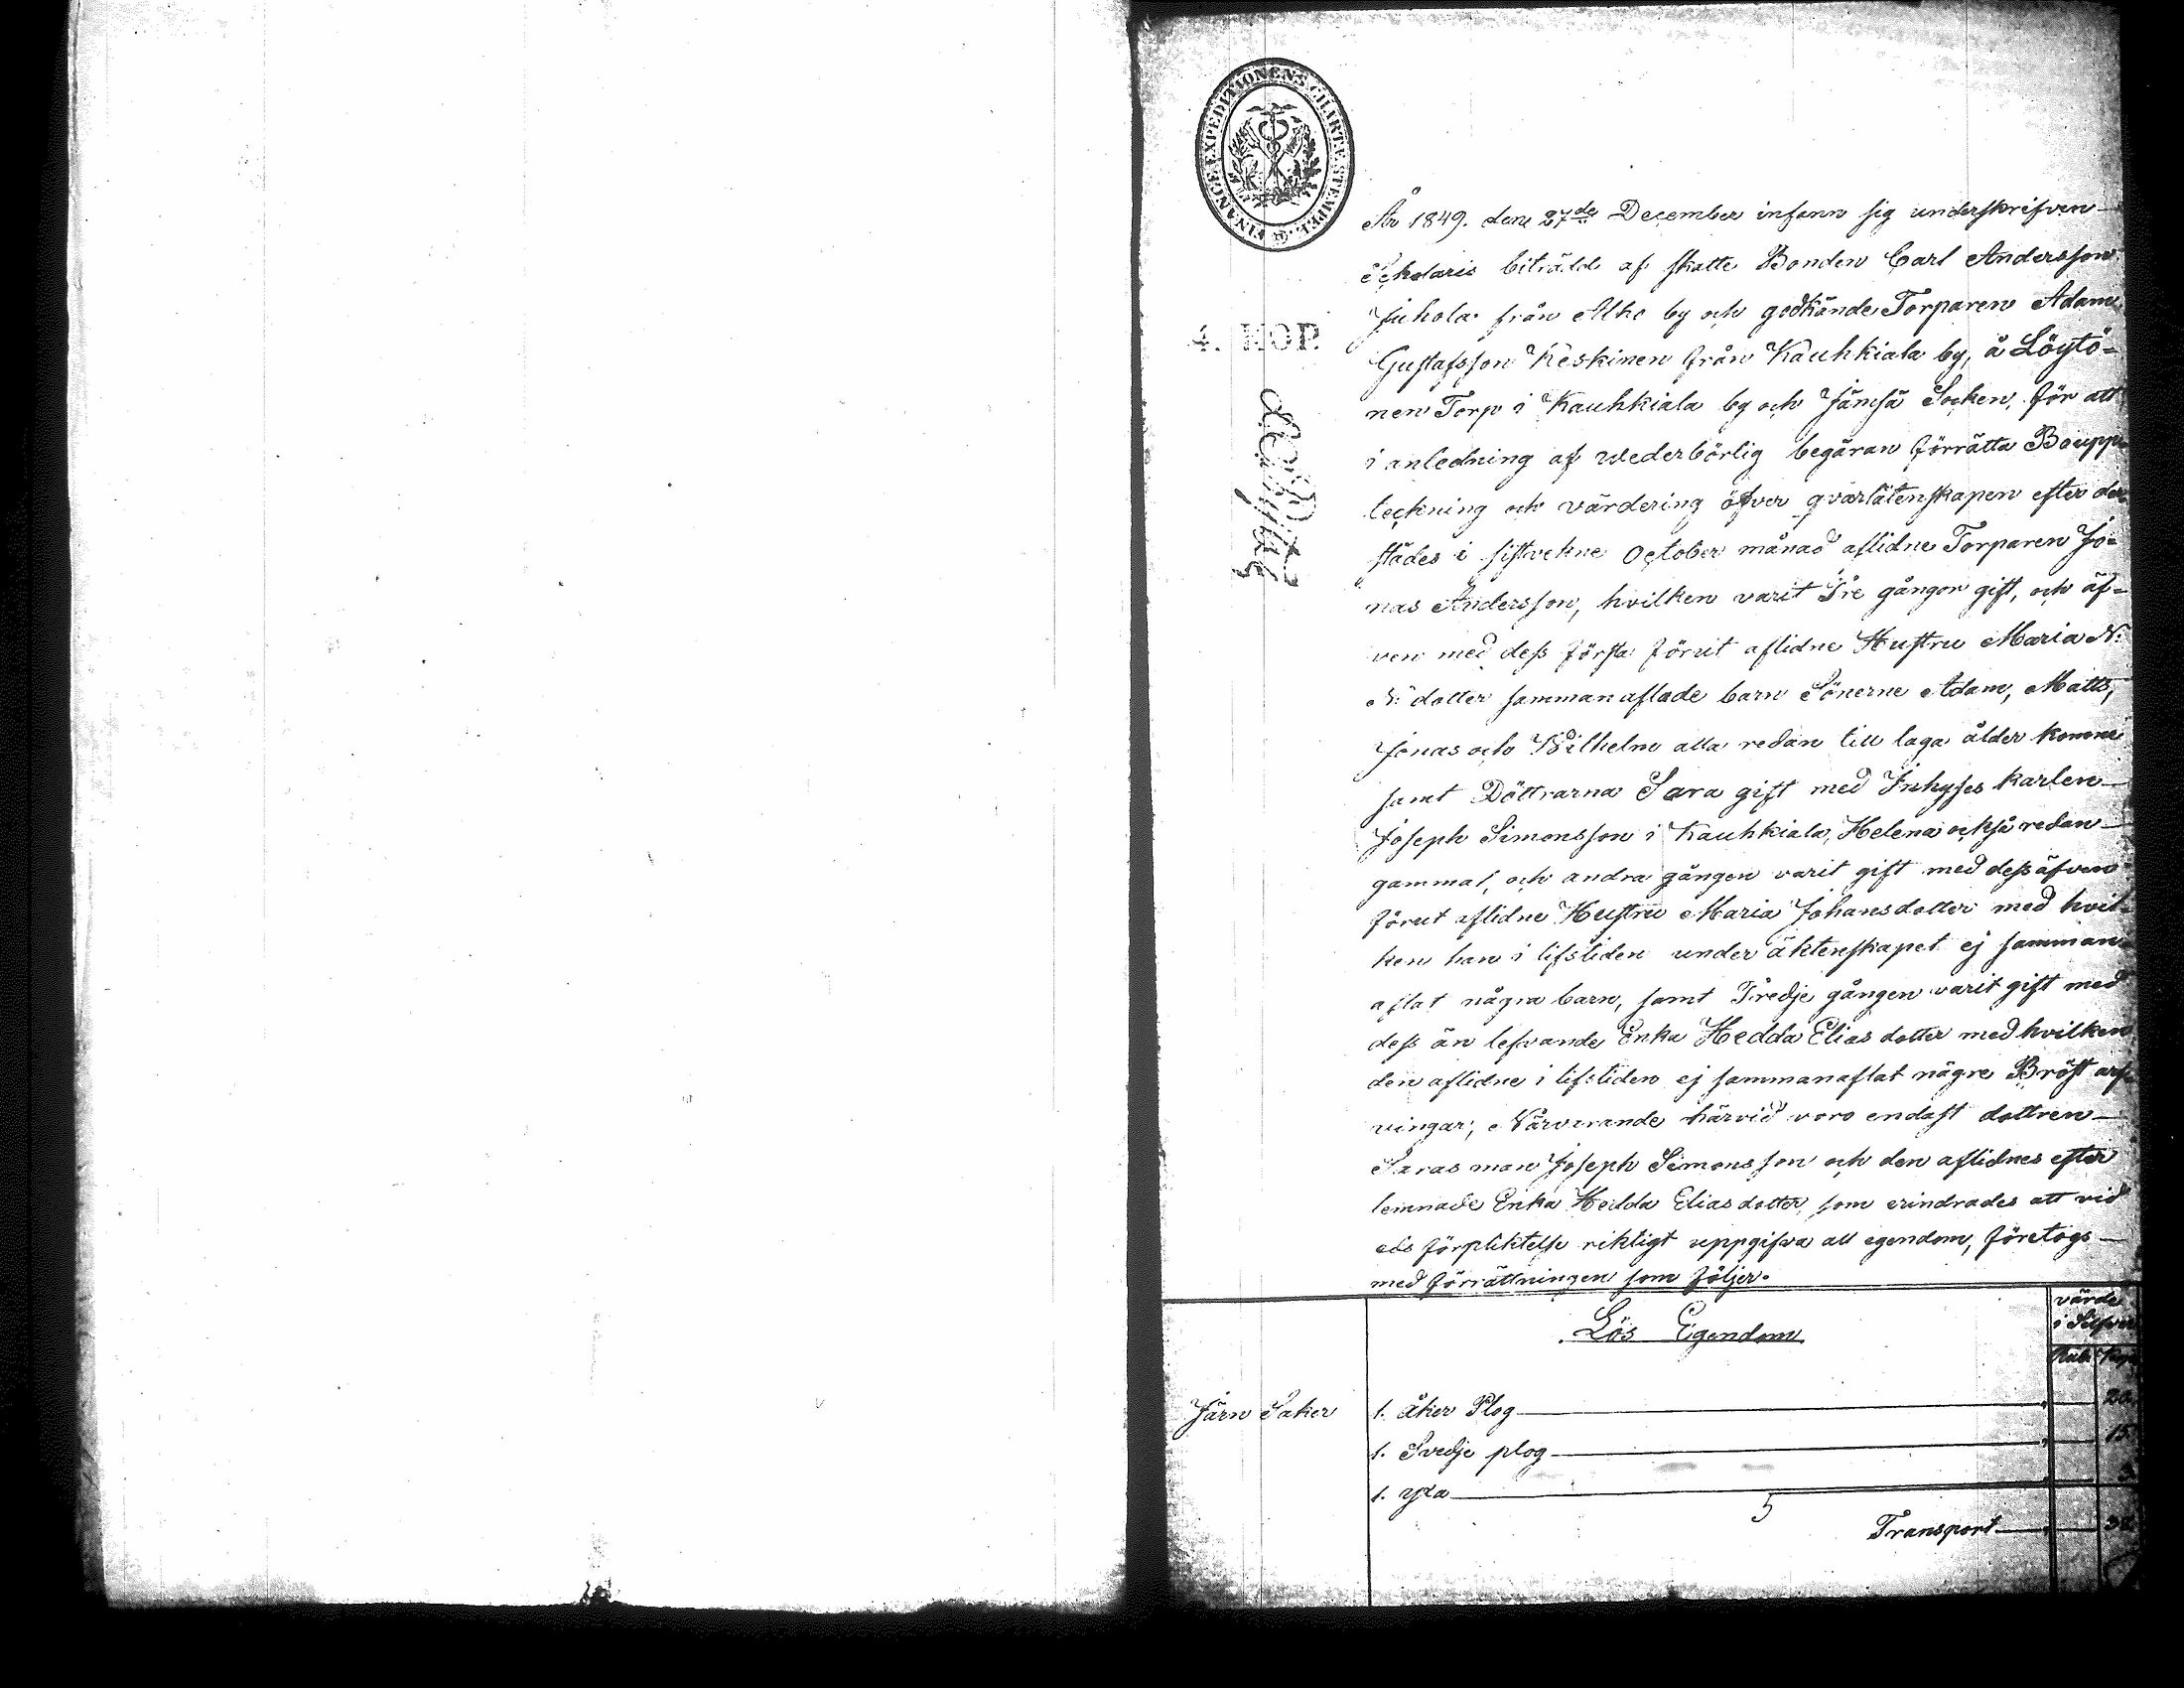 FINANCE EXPEDITIONENS CHARTÆ STEMPEL.
4. KOP.
År 1849. den 27de December infann sig underskrifven
Scholaris biträdd af skatte Bonden Carl Andersson
Juhola från Alho by och godkände Torparen Adam
Gustafsson Keskinen från Kauhkiala by, å Löytö-
nen Torp i Kauhkiala by och Jämsä Socken, för att
i anledning af wederbörlig begäran förrätta Boupp-
teckning och värdering öfver qvarlåtenskapen efter der-
städes i sistvekne October månad aflidne Torparen Jo-
nas Andersson, hvilken varit Tre gångor gift, och äf-
ven med dess första förut aflidne Hustru Maria N:
N: dotter sammanaflade barn Sönerne Adam, Matts,
Jonas och Wilhelm alla redan till laga ålder komne
samt Döttrarna Sara gift med Inhyses karlen
Joseph Simonsson i Kauhkiala, Helena också redan
gammal, och andra gången varit gift med dess äfven
förut aflidne Hustru Maria Johansdotter med hvil-
ken han i lifstiden under äktenskapet ej samman-
aflat några barn, samt Tredje gången varit gift med
dess än lefvande Enka Hedda Elias dotter med hvilken
den aflidne i lifstiden ej sammanaflat någre Bröst arf-
vingar; Närvarande härvid voro endast dottren
Saras man Joseph Simonsson och den aflidnes efter
lemnade Enka Hedda Elias dotter, som erindrades att vid
eds förpliktelse riktigt uppgifva all egendom, företogs
med förrättningen som följer.
Lös Egendom
värde
i Silfver
Rub. Kop.
Järn Saker 1. åker Plog 20.
1. Svedje plog 15.
1. yxa 3.
5
Transport 38.